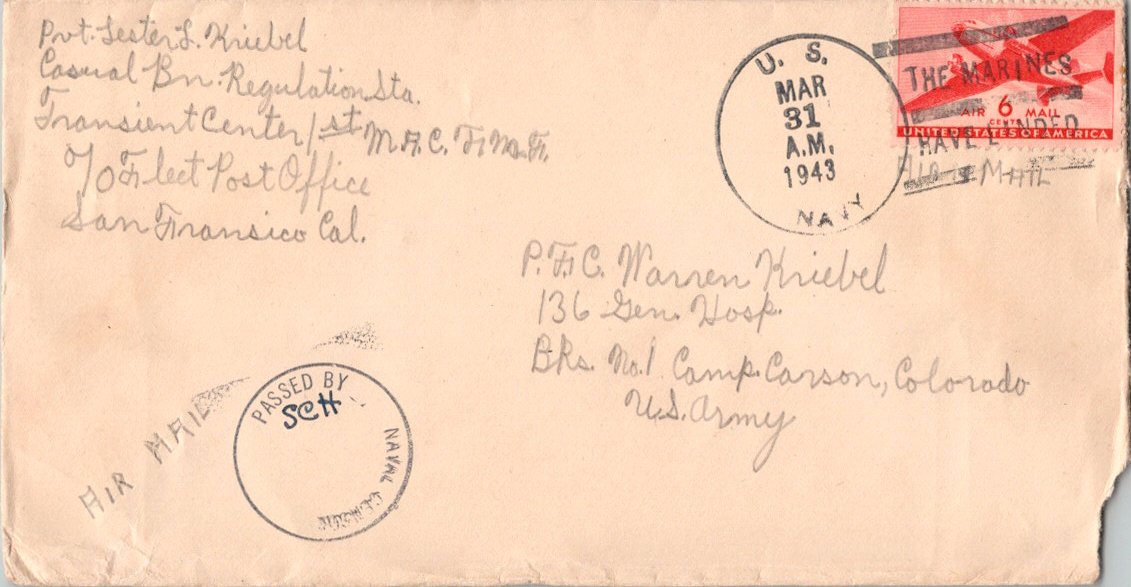 Pvt. Lester L. Kriebel
Casual Bn. Regulation Sta.
Transient Center/1st M.A.C. F.M.F.
c/o Fleet Post Office
San Fransico Cal.
U. S.
MAR
31
A.M.
1943
NAVY
THE MARINES
HAVE LANDED
AIR 6 MAIL
CENTS
UNITED STATES OF AMERICA
AIR MAIL
P.F.C. Warren Kriebel
136 Gen. Hosp.
Bks. No. 1 Camp. Carson, Colorado
U.S. Army
AIR MAIL
PASSED BY
SCH
NAVAL CENSOR